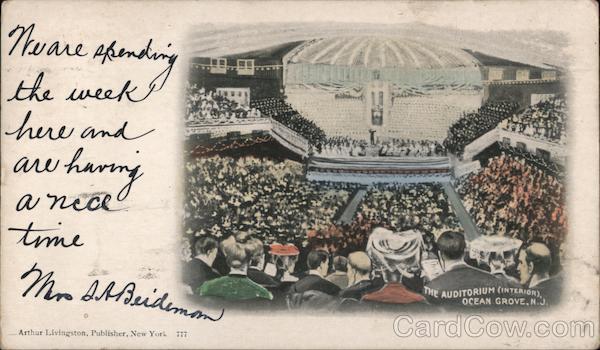 We are spending
the week
here and
are having
a nice
time
Mrs S A Beideman
THE AUDITORIUM (INTERIOR),
OCEAN GROVE, N.J.
Arthur Livingston, Publisher, New York 777
CardCow.com